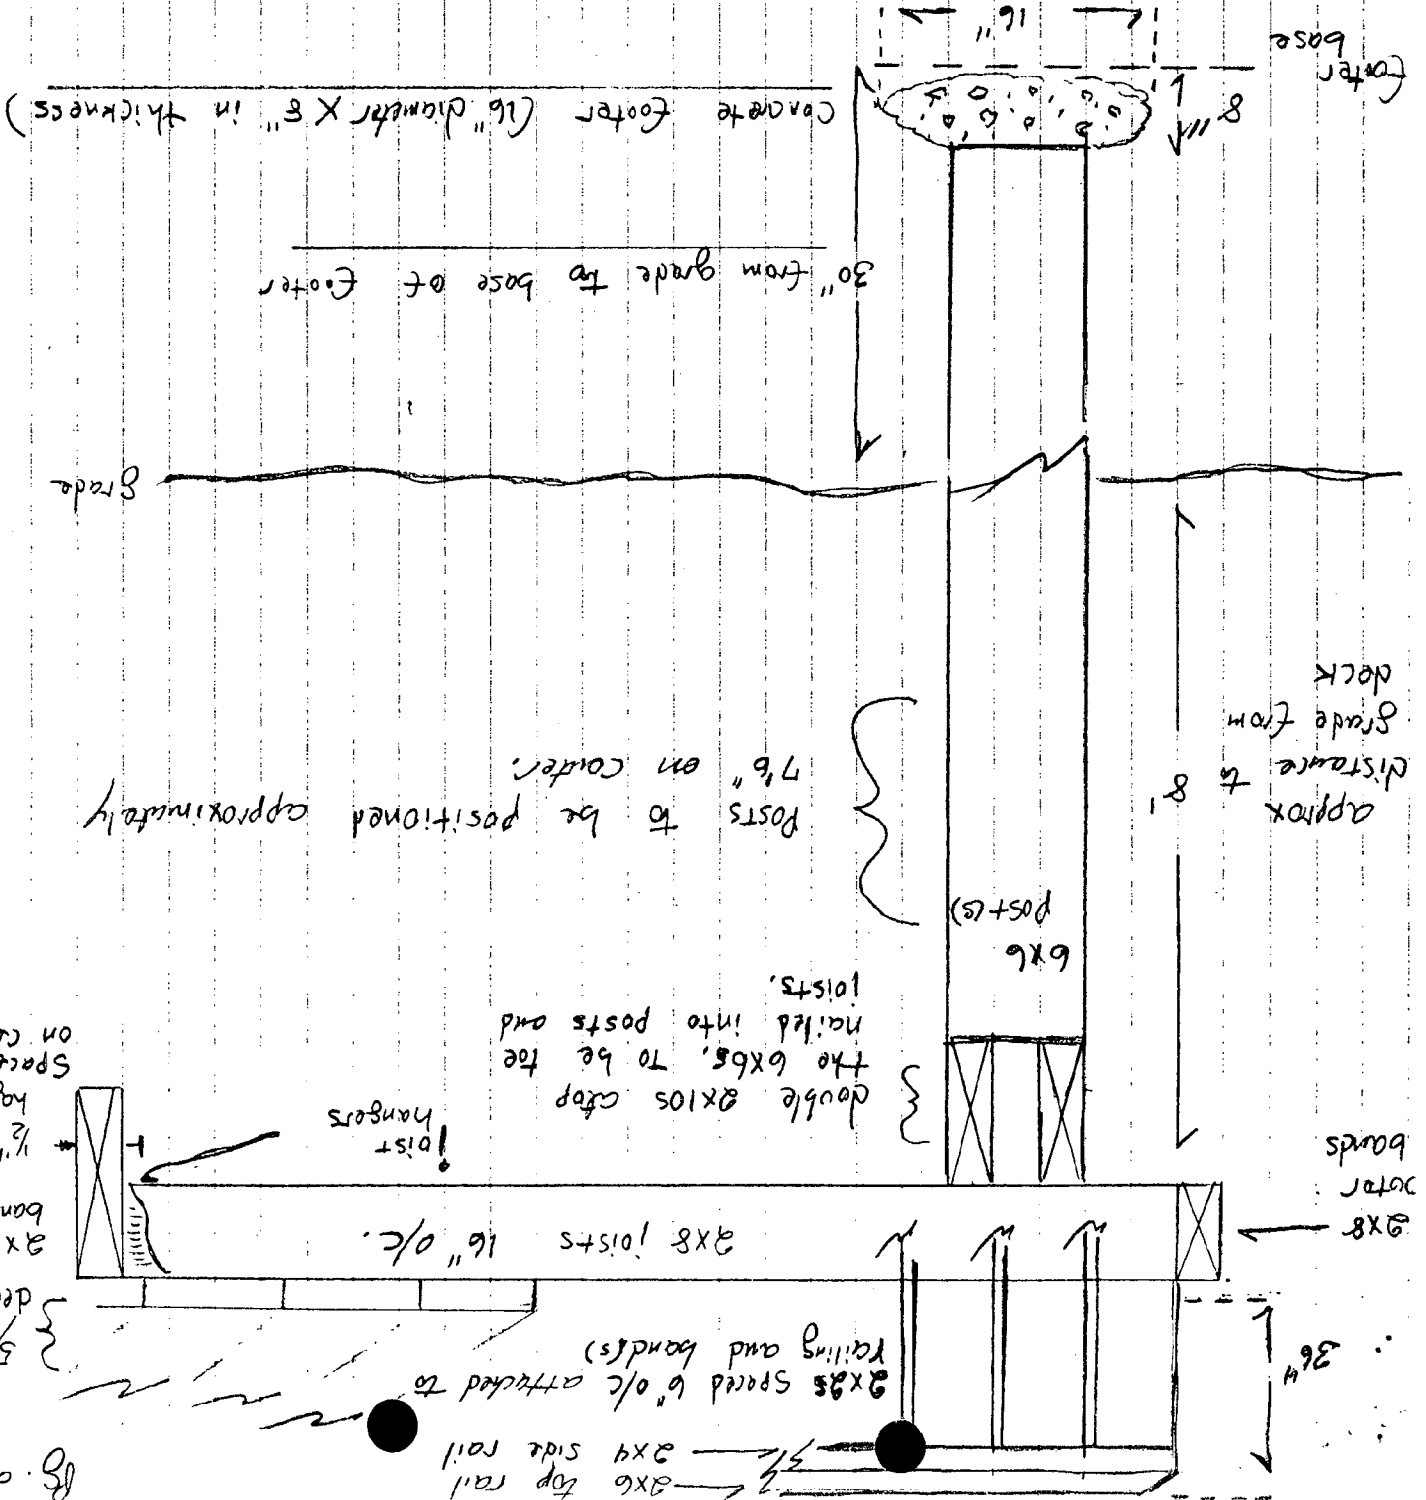 Pg.
2x6 top rail
2x4 side rail
2x2s spaced 6" o/c attached to
railing and band(s)
36"
2x8 joists 16" o/c.
2x8
outer
bands
joist
hangers
2x
ban
1/2"
Space
double 2x10s atop
the 6x6s. To be toe
nailed into posts and
joists.
6x6
post(s)
Posts to be positioned approximately
7'6" on center.
approx
distance to
grade from
deck
8'
grade
30" from grade to base of footer
Concrete footer (16" diameter X 8" in thickness)
8"
16"
footer
base